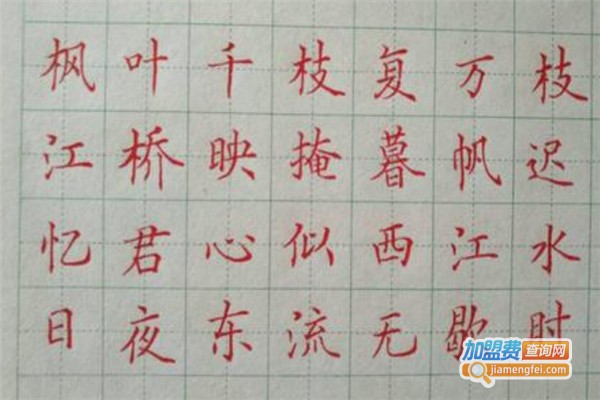 枫叶千枝复万枝
江桥映掩暮帆迟
忆君心似西江水
日夜东流无歇时
加盟费查询网
www.jiamengfei.com